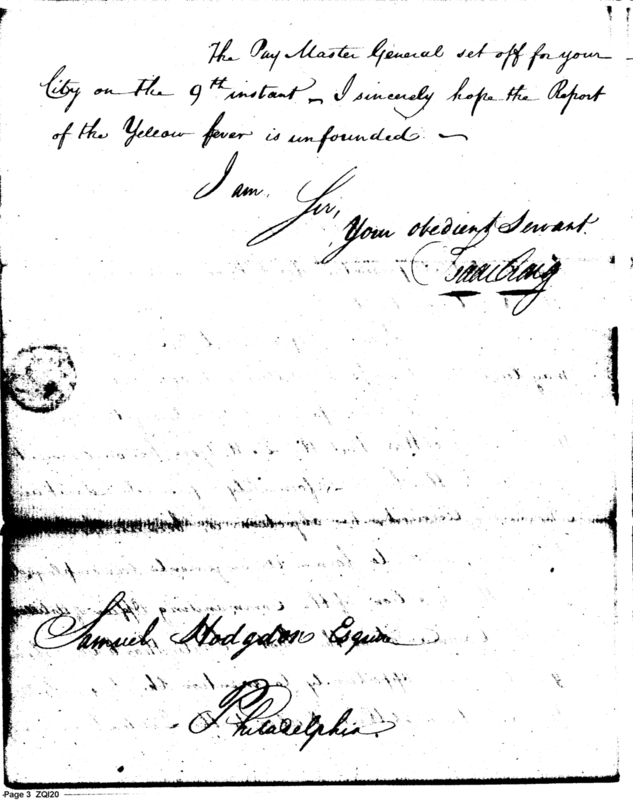 The Pay Master General set off for your
City on the 9th instant – I sincerely hope the Report
of the Yellow fever is unfounded. –
I am,
Sir,
Your obedient Servant.
Isaac Craig
Samuel Hodgdon Esquire
Philadelphia.
Page 3 ZQI20